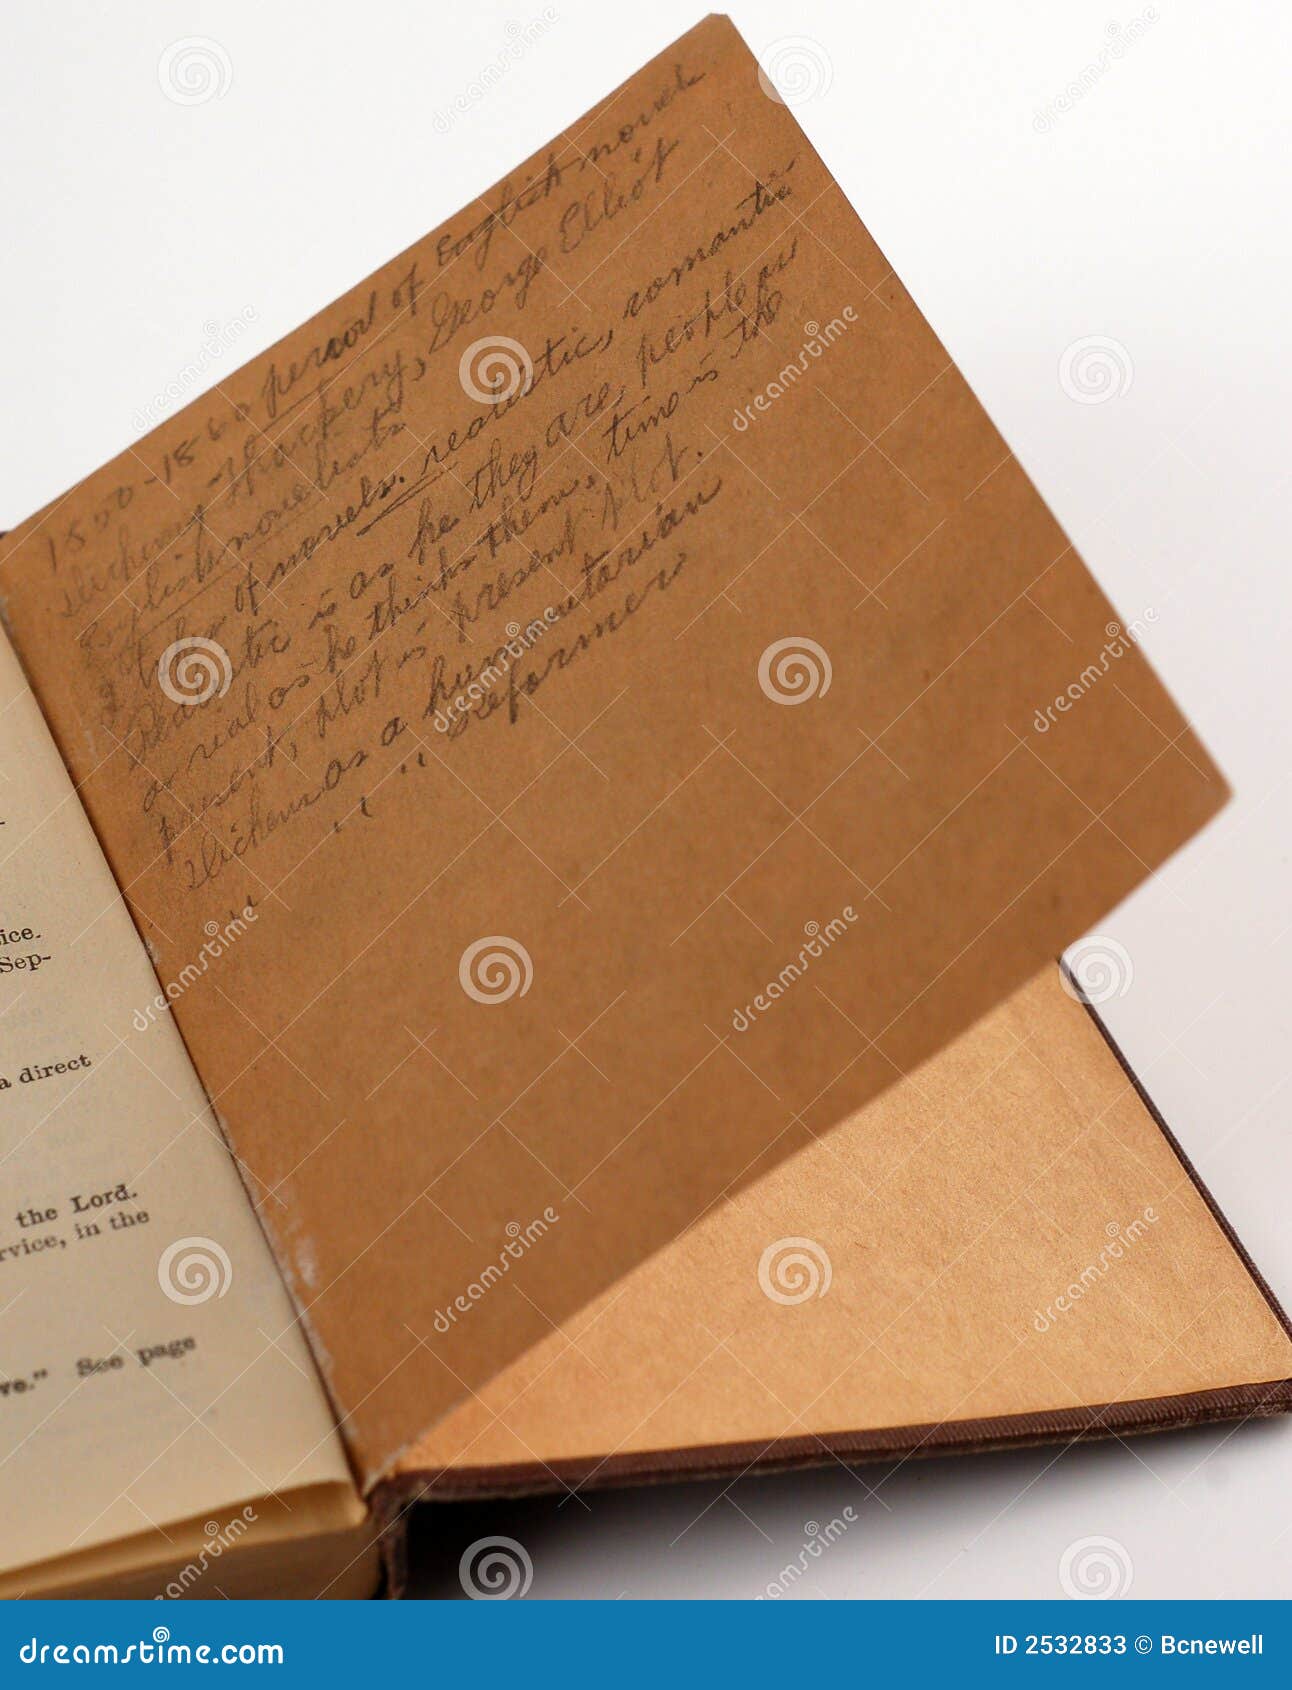 1800-1860 period of English novel
Dickens, Thackery, George Elliot
English novelists
2 types of novels. realistic, romantic
Realistic is as he they are, people are
as real as he thinks them, time is the
present, plot is present plot.
Dickens as a humanitarian
" " " Reformer
ice.
Sep-
a direct
the Lord.
rvice, in the
ve." See page
dreamstime
dreamstime.com
ID 2532833 © Bcnewell